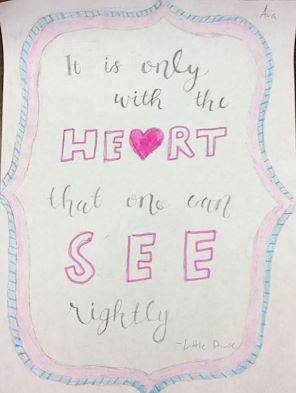 Ava
It is only
with the
HE♥RT
that one can
SEE
rightly
-Little Prince